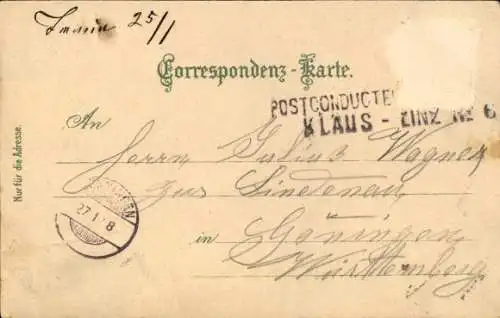 25/1
Correspondenz-Karte.
POSTCONDUCTE
KLAUS - LINZ No 6
Nur für die Adresse.
An
Herrn Julius Wagner
zur Lindenau
in Gönningen
Württemberg
27.1.8